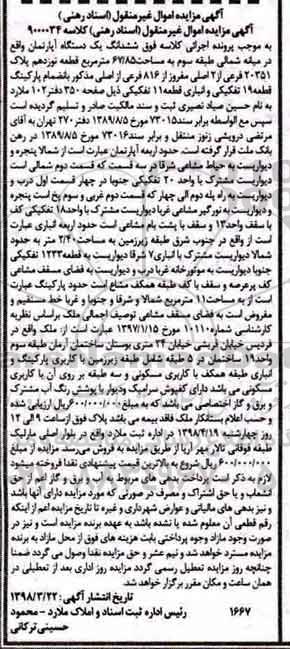 آگهی مزایده اموال غیرمنقول (اسناد رهنی)
آگهی مزایده اموال غیرمنقول (اسناد رهنی) کلاسه ۹۰۰۰۰۳۴
به موجب پرونده اجرائی کلاسه فوق ششدانگ یک دستگاه آپارتمان واقع
در میانه شمالی طبقه سوم به مساحت۶۷/۸۵مترمربع قطعه نوزدهم پلاک
۲۰۳۵۱ فرعی از۲ اصلی مفروز از ۸۱۶ فرعی از اصلی مذکور بانضمام پارکینگ
قطعه۱۹ تفکیکی و انباری قطعه۱۱ تفکیکی ذیل صفحه ۳۵۰ دفتر۱۰۲ ملارد
به نام حسین صیاد نصیری ثبت و سند مالکیت صادر و تسلیم گردیده است
سپس مع الواسطه برابر سند۷۳۰۱۵ مورخ ۱۳۸۹/۸/۵ دفتر۲۷۰ تهران به آقای
مرتضی درویشی زنوز منتقل و برابر سند۷۳۰۱۶ مورخ ۱۳۸۹/۸/۵ در رهن
بانک ملت قرار گرفته است. حدود اربعه آپارتمان عبارت است از شمالا پنجره و
دیواریست به حیاط مشاعی شرقا در سه قسمت که قسمت دوم شمالی است
دیواریست مشترک با واحد ۲۰ تفکیکی جنوبا در چهار قسمت اول درب و
دیواریست به راه پله دوم الی چهار که قسمت دوم غربی و سوم پخ است پنجره
و دیواریست به نورگیر مشاعی غربا دیواریست مشترک با واحد۱۸ تفکیکی کف
با سقف واحد۱۳ و سقف با پشت بام مشاعی است حدود اربعه انباری عبارت
است از واقع در جنوب شرق طبقه زیرزمین به مساحت۲/۴۰ متر به حدود
شمالا دیواریست مشترک با انباری۷ شرقا دیواریست به قطعه۱۲۲۳ تفکیکی
جنوبا دیواریست به موتورخانه غربا درب و دیواریست به فضای مسقف مشاعی
کف برعرصه و سقف با کف طبقه همکف مشاع است حدود پارکینگ عبارت
است از به مساحت۱۱ مترمربع شمالا و شرقا و جنوبا و غربا خط مستقیم و
مفروض است به فضای مسقف مشاعی توصیف اجمالی ملک براساس نظریه
کارشناسی شماره۱۰۱۱۰ مورخ ۱۳۹۷/۱/۱۵ عبارت است از: ملک واقع در
فردیس خیابان قریشی خیابان ۲۴ متری بوستان ساختمان آرمان طبقه سوم
واحد۱۹ ساختمان در ۵ طبقه شامل طبقه زیرزمین با کاربری پارکینگ و
انباری طبقه همکف با کاربری مسکونی و سه طبقه بر روی آن با کاربری
مسکونی می باشد دارای کفپوش سرامیک ودیوار با پوشش رنگ آب مشترک
و برق و گاز اختصاصی می باشد که به مبلغ۶۰۰/۰۰۰/۰۰۰ریال ارزیابی شده
و حسب اعلام بستانکار ملک فاقد بیمه می باشد پلاک فوق ازساعت ۹ الی ۱۲
روز چهارشنبه ۱۳۹۸/۴/۱۹ در اداره ثبت ملارد واقع در بلوار اصلی مارلیک
طبقه فوقانی تالار مهر آریا از طریق مزایده به فروش می رسد. مزایده از مبلغ
۶۰۰/۰۰۰/۰۰۰ ریال شروع به بالاترین قیمت پیشنهادی نقدا فروخته میشود
لازم به ذکر است پرداخت بدهی های مربوط به آب و برق و گاز اعم از حق
انشعاب و یا حق اشتراک و مصرف در صورتی که مورد مزایده دارای آنها باشد
و نیز بدهی های مالیاتی و عوارض شهرداری و غیره تا تاریخ مزایده اعم از اینکه
رقم قطعی آن معلوم شده یا نشده باشد به عهده برنده مزایده است و نیز در
صورت وجود مازاد وجوه پرداختی بابت هزینه های فوق از محل مازاد به برنده
مزایده مسترد خواهد شد و نیم عشر و حق مزایده نقدا وصول می گردد ضمنا
چنانچه روز مزایده تعطیل رسمی گردد مزایده روز اداری بعد از تعطیلی در
همان ساعت و مکان مقرر برگزار خواهد شد.
تاریخ انتشار آگهی: ۱۳۹۸/۳/۲۲
۱۶۶۷ رئیس اداره ثبت اسناد و املاک ملارد - محمود
حسینی ترکانی